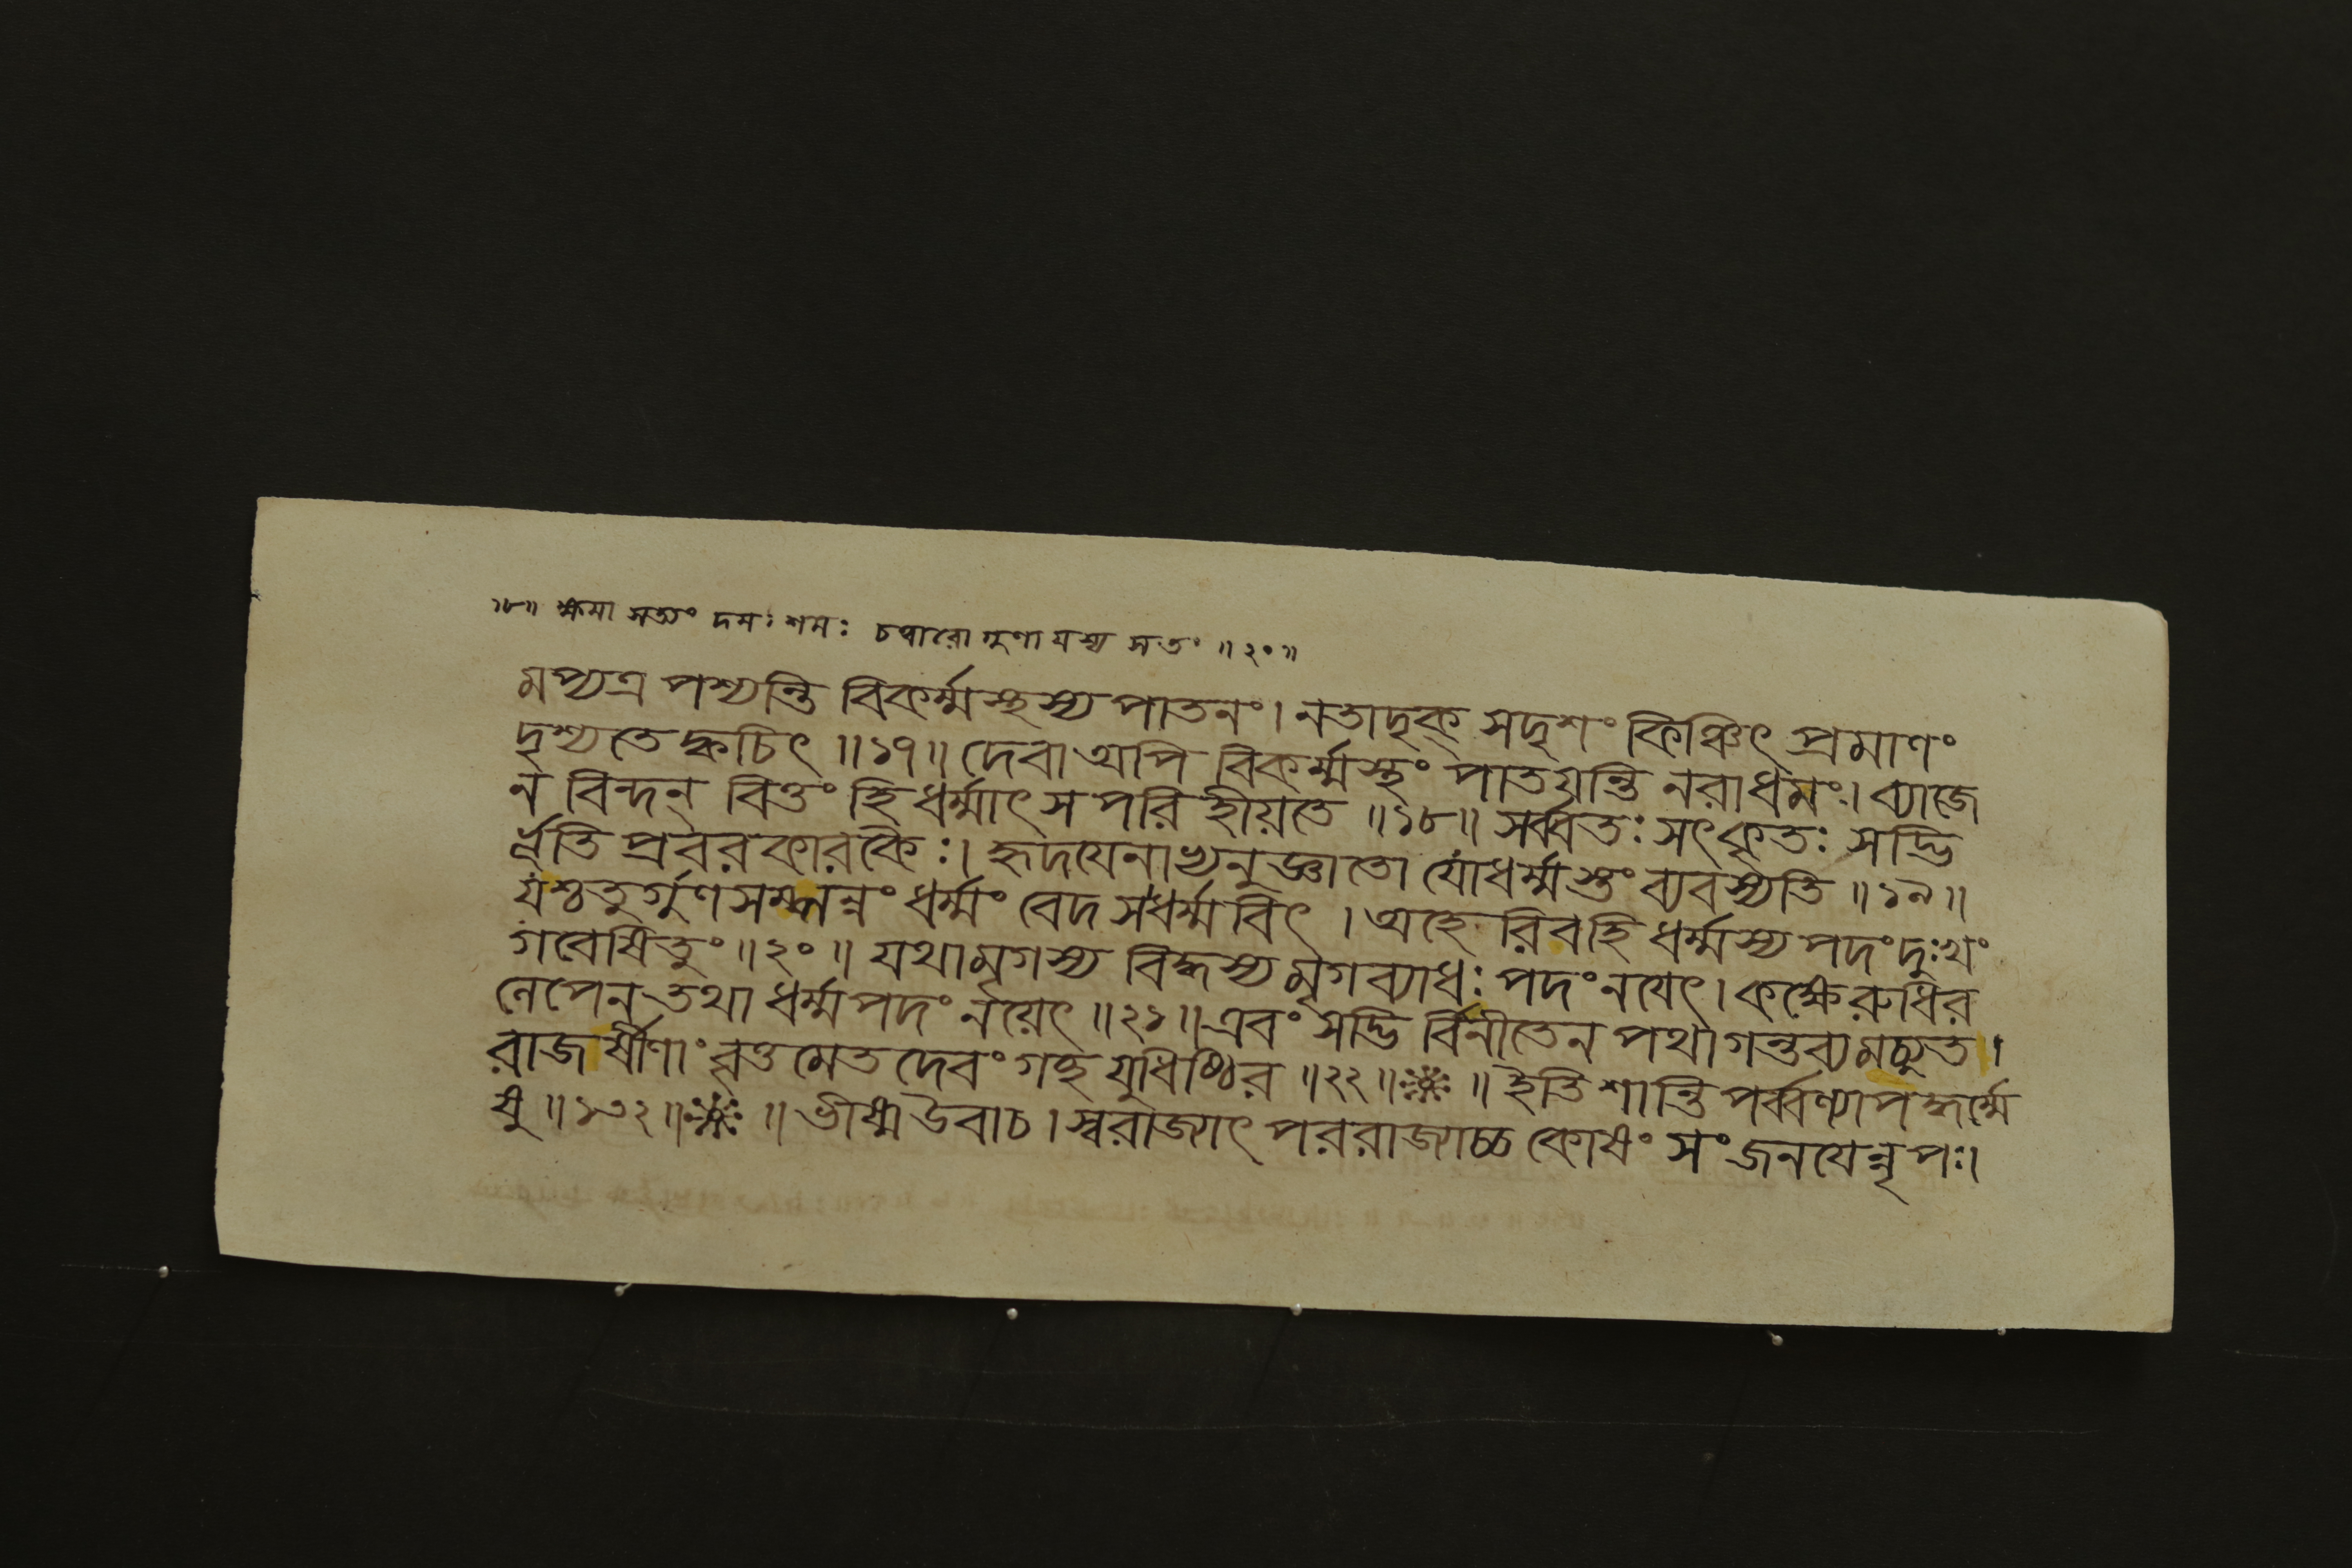 ॥১৮॥ ক্ষমা সত্যং দমঃ শমঃ চত্বারো গুণা যস্য সতং ॥২০॥
মপ্যত্র পশ্যন্তি বিকর্ম্মস্থস্য পাতনং। নতাদৃক্ সদৃশং কিঞ্চিৎ প্রমাণং
দৃশ্যতে ক্বচিৎ ॥১৭॥ দেবা অপি বিকর্ম্মস্থং পাতয়ন্তি নরাধমং। ব্যাজে
ন বিন্দন্ বিত্তং হি ধর্ম্মাৎ স পরি হীয়তে ॥১৮॥ সর্ব্বতঃ সৎকৃতঃ সদ্ভি
র্ভূতি প্রবর কারকৈঃ। হৃদয়েনাভ্যনুজ্ঞাতো যো ধর্ম্মস্তং ব্যবস্যতি ॥১৯॥
যশ্চতুর্গুণ সম্পন্নং ধর্ম্মং বেদ স ধর্ম্মবিৎ । অহে রিবহি ধর্ম্মস্য পদং দুঃখং
গবেষিতুং ॥২০॥ যথা মৃগস্য বিদ্ধস্য মৃগব্যাধঃ পদং নয়েৎ। কক্ষে রুধির
লেপেন তথা ধর্ম্ম পদং নয়েৎ ॥২১॥ এবং সদ্ভি র্বিনীতেন পথা গন্তব্যমচ্যুত।
রাজর্ষীণাং বৃত্তমেতদেবং গচ্ছ যুধিষ্ঠির ॥২২॥ ॥ ইতি শান্তি পর্ব্বণ্যাপদ্ধর্ম্মে
ষু ॥১৩২॥ ॥ ভীষ্ম উবাচ। স্বরাজ্যাৎ পররাজ্যাচ্চ কোষং সং জনয়েন্নৃপঃ।